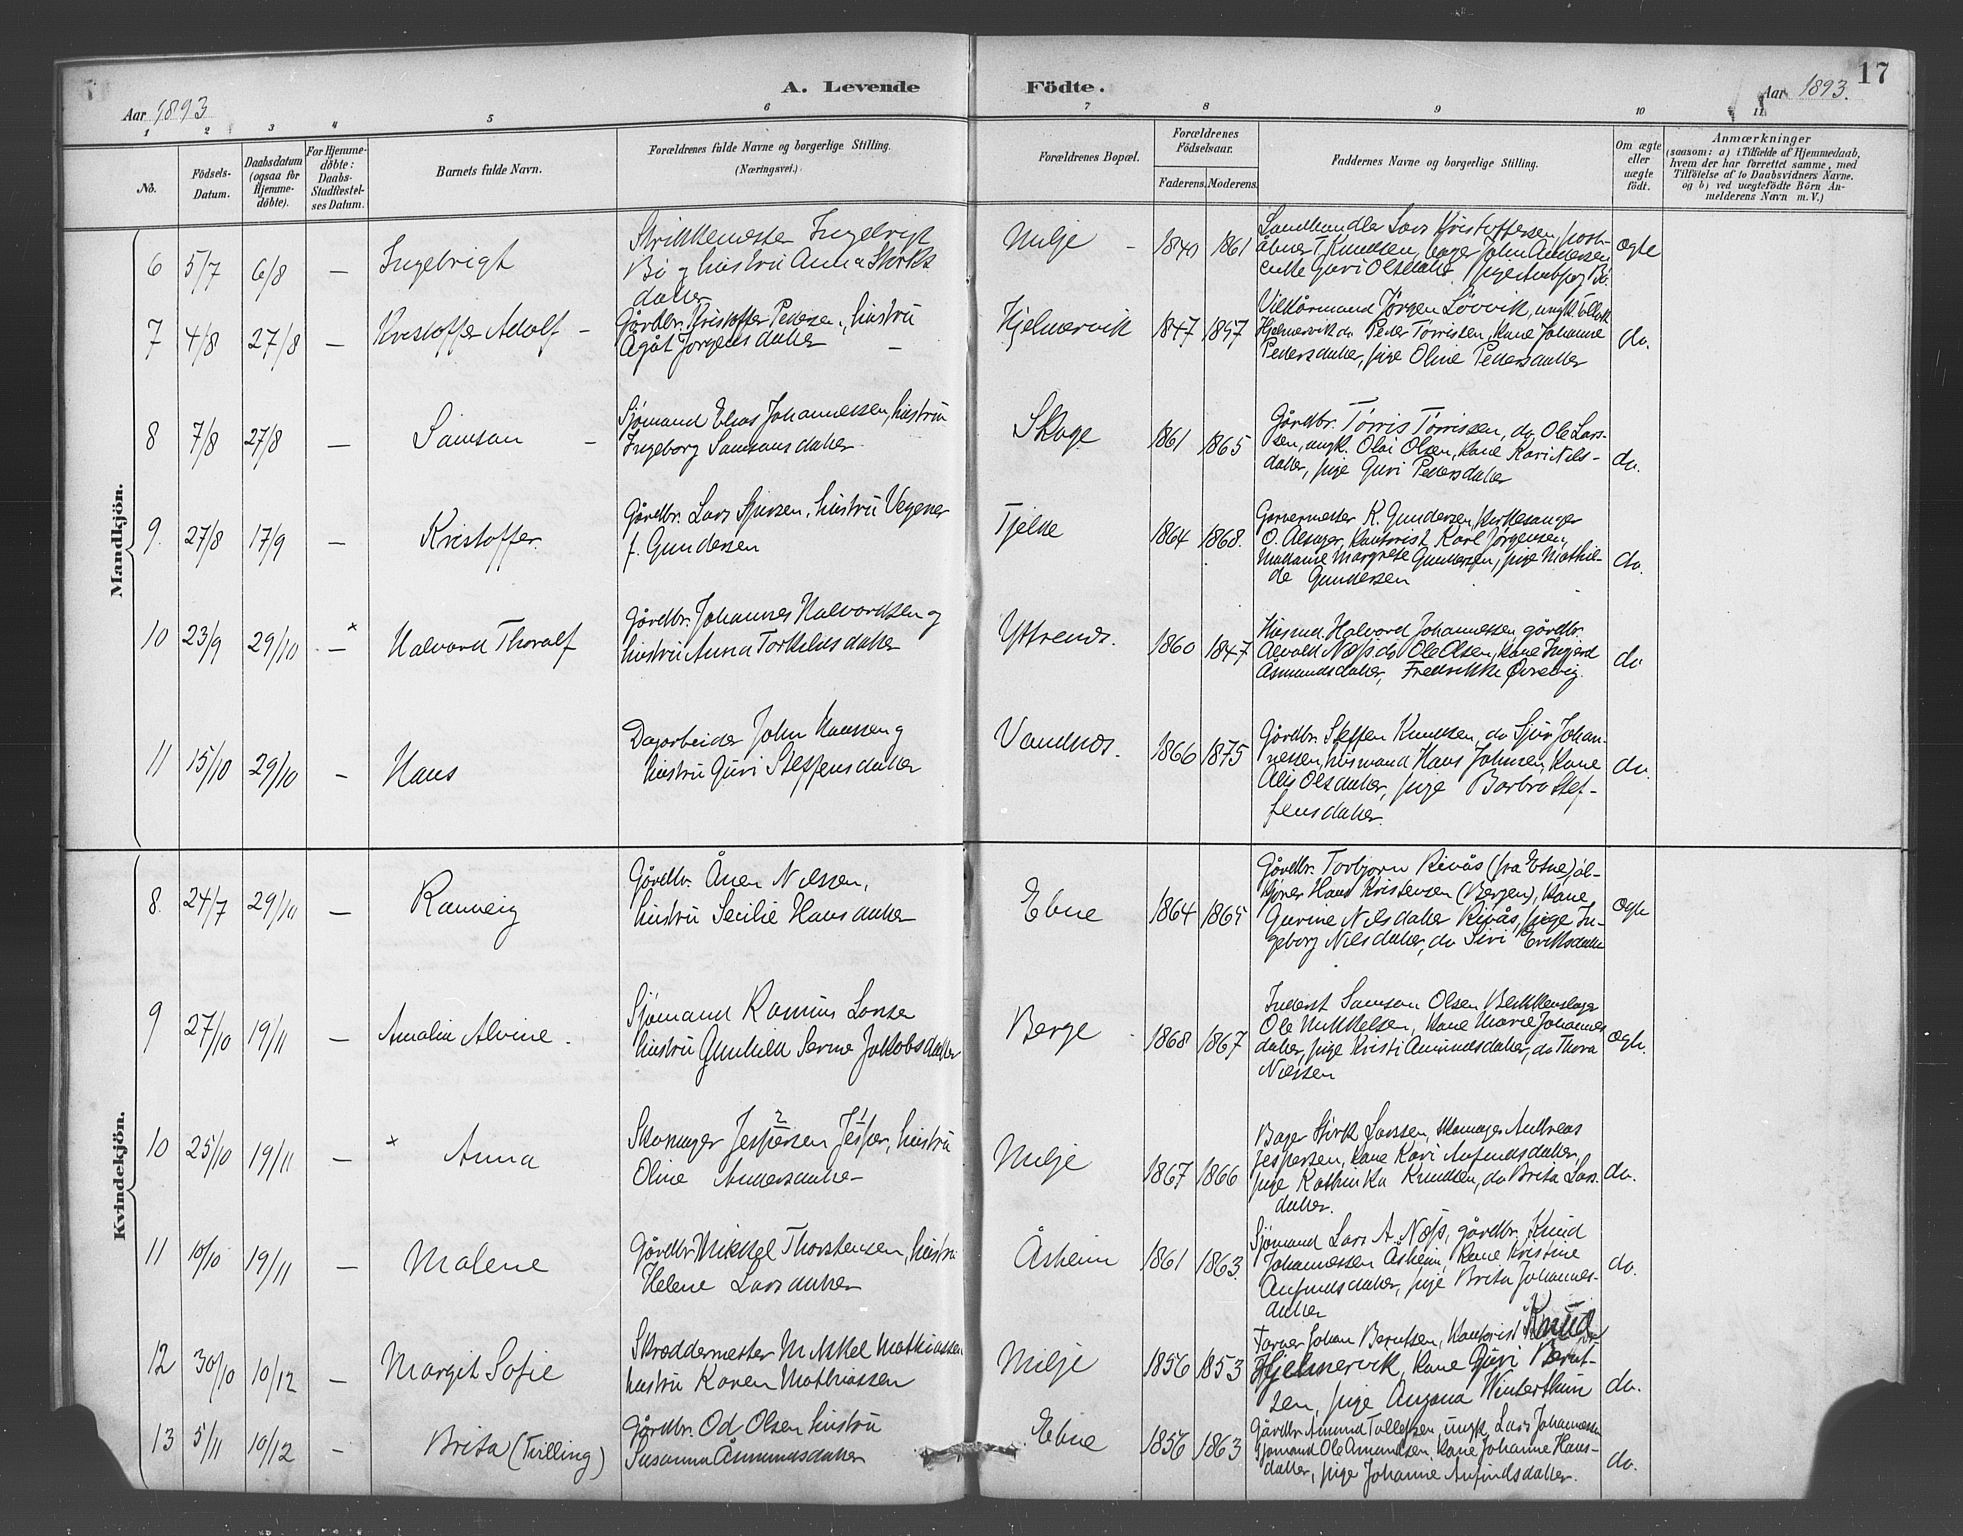 A. Levende Födte.
17
Aar 1893
Aar 1893.
1 2 3 4 5 6 7 8 9 10 11
No.
Födsels-Datum.
Daabsdatum (ogsaa for Hjemme-döbte).
For Hjemme-döbte: Daabs-Stadfæstel-ses Datum.
Barnets fulde Navn.
Forældrenes fulde Navne og borgerlige Stilling. (Næringsvei.)
Forældrenes Bopæl.
Forældrenes Födselsaar.
Faderens. Moderens.
Faddernes Navne og borgerlige Stilling.
Om ægte eller uægte födt.
Anmærkninger
(saasom: a) i Tilfælde af Hjemmedaab,
hvem der har forrettet samme, med
Tilföielse af to Daabsvidners Navne.
og b) ved uægtefödte Börn An-
melderens Navn m. V.)
Mandkjön.
6 5/7 6/8 — Ingebrigt
Bi og hustru Anna Styrks
datter
Milje - 1861
ægte
7 4/8 27/8 — Kristoffer Adolf -
Gårdbr. Kristoffer Peders., hustru
Ågåt Jørgensdatter -
Hjelmervik 1847 1857
Hjelmervik do Peder Torrissen, kone Johanne
Pedersdatter, pige Oline Pedersdatter
do.
8 7/8 27/8 — Samson -
Sjømand Elias Johannessen, hustru
Ingeborg Samsonsdatter
Skoge 1861 1865
Gårdbr. Tørris Tørrissen, do Ole Lars-
sen, ungk. Olai Olsen, kone Kari Nils-
datter, pige Guri Pedersdatter
do.
9. 27/8 17/9 — Kristoffer.
Gårdbr. Lars Sjursen, hustru
f. Gundersen
1864 1868.
Garvermester K. Gundersen, kirkesanger
O. Alsager, kontorist Karl Jørgensen,
Madame Margrete Gundersen, pige Mathil-
de Gundersen
do.
10 23/9 29/10 × — Halvard Thoralf
Gårdbr. Johannes Halvordsen og
hustru Anna Torkelsdatter
Yttrenes. 1860 1847
Husmd. Halvord Johannessen, gårdbr.
Næss do Ole Olsen, kone
Åsmundsdatter, Fredrikke Øvrevig.
do
11 15/10 29/10 — Hans
Dagarbeider John Hanssen og
hustru Guri Steffensdatter
Vandnes. 1866 1875
Gårdbr. Steffen Knudsen, do Sjur Johan-
nessen, husmand Hans Johnsen, kone
Olsdatter, pige Barbro Stef-
fensdatter.
do.
Kvindekjön.
8. 24/7 29/10 — Ranveig
Gårdbr. Ånen Nilssen,
hustru Secilie Hansdatter
Ebne 1864 1865
Gårdbr. Torbjørn Rivås (fra Etne)
Hans Kristensen (Bergen), kone
Gurine Nilsdatter Rivås, pige In-
geborg Nilsdatter, do Siri Eriksdatter
ægte
9 27/10 19/11 — Amalia Alvine.
Sjømand Rasmus Larsse
hustru Gunhild Serine Jakobsdatter
Berge 1868 1867
Inderst Samson Olsen Blikkenslager
Ole Mikkelsen, kone Marie Johannes
datter, pige Kristi Amundsdatter, do Thora
Nilssen
ægte.
10 25/10 19/11 — × Anna
Skomager Jespersen Jesper, hustru
Oline Andersdatter
Milje 1867 1866
Bager Stirk Larssen, skomager Andreas
Jespersen, kone Kari Anfindsdatter,
pige Kathinka Knudsen, do Brita Lars-
datter.
do.
11 10/10 19/11 — Malene
Gårdbr Mikkel Thorstensen, hustru
Helene Larsdatter
Åsheim 1861 1863.
Sjømand Lars A. Næss, gårdbr. Knud
Johannessen Åsheim, kone Kristine
Anfindsdatter, pige Brita Johannes-
datter
do.
12 30/10 10/12 — Margit Sofie
Skræddermester Mikkel Mathiassen
hustru Karen Mathiassen
Milje 1856 1853
Farver Johan Berntsen, kontorist Knud
Hjelmervik, kone Guri Bernt-
sen, pige Winterthun
do.
13 5/11 10/12 — Brita (Tvilling)
Gårdbr. Od Olsen hustru
Susanna Åmundsdatter
Ebne 1856 1863
Gårdbr Amund Tollefsen, ungk. Lars Johannessen
sjømand Ole Amundsen, kone Johanne Hans-
datter, pige Johanne Anfindsdatter.
do.